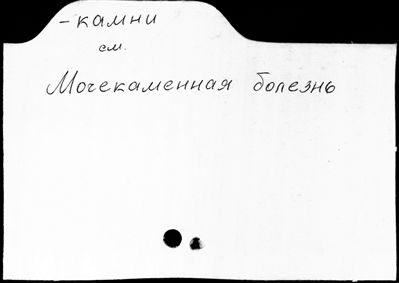 -камни
см.
Мочекаменная болезнь